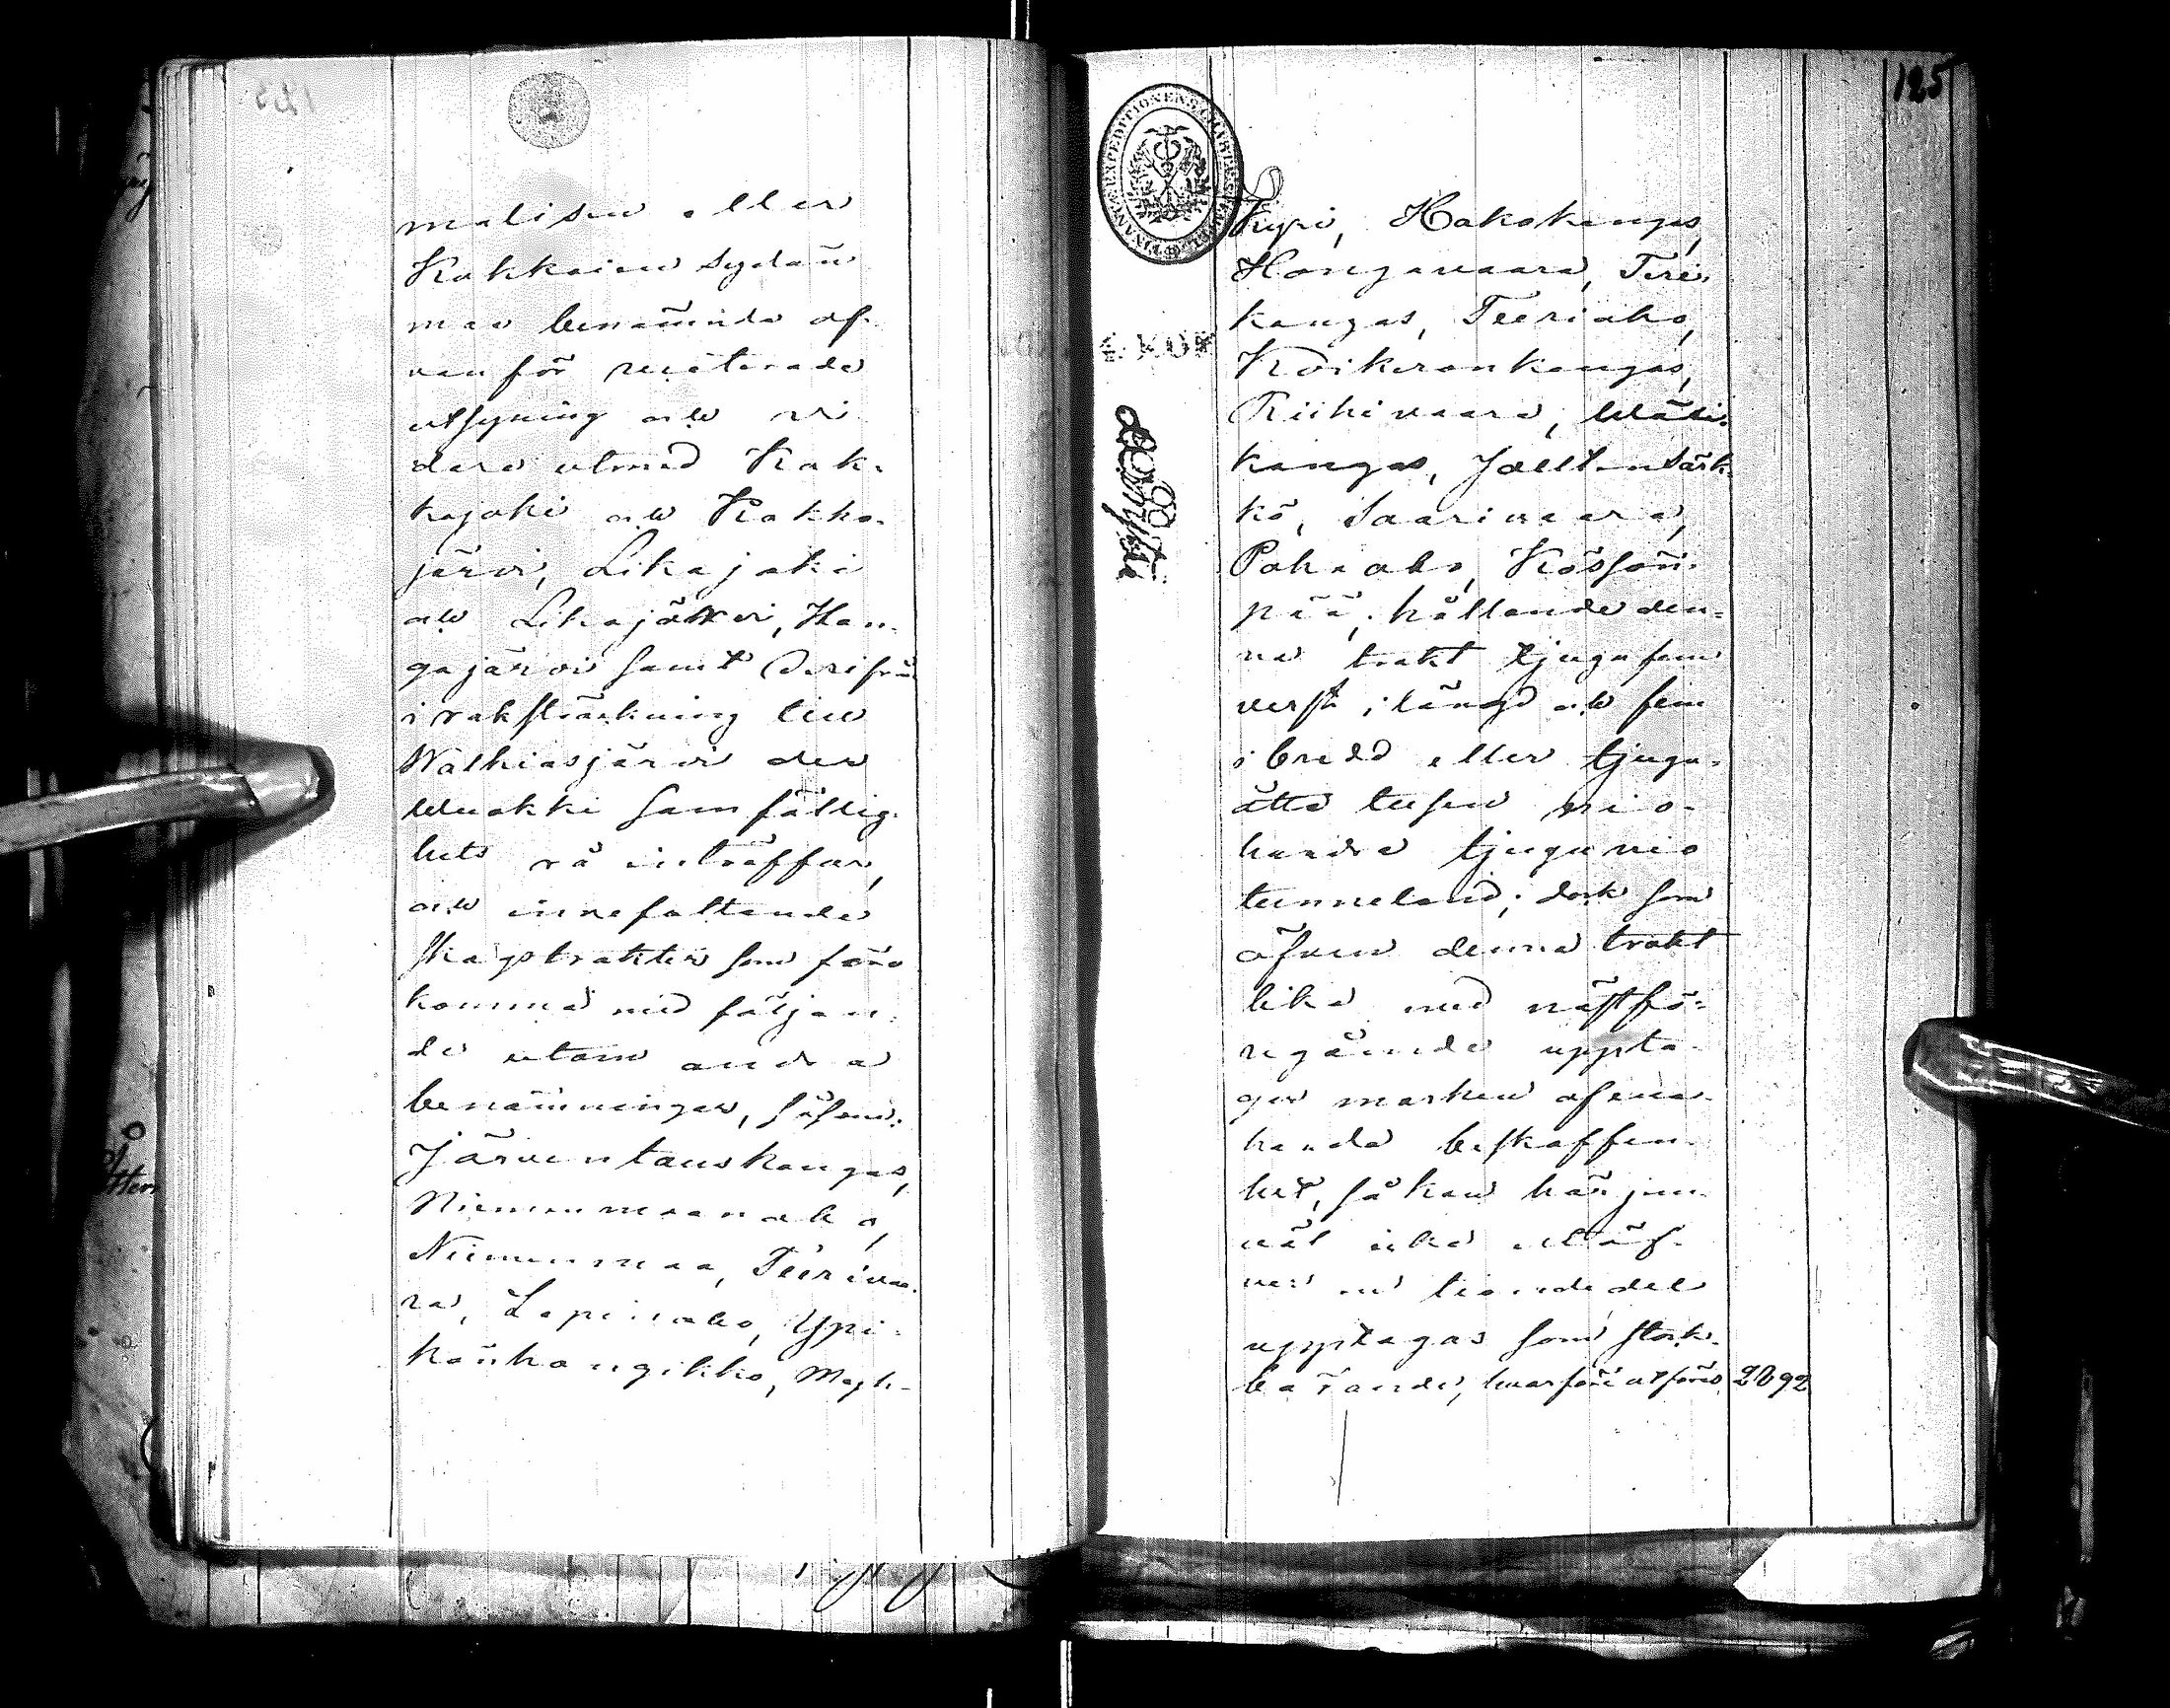 malisen eller
Kokkoisen sydän
maa benämnda of-
van för reciterade
utsyning och vi
dare utmed Kok-
kojoki och Kokko-
järvi, Likajoki
och Likajärvi, Han-
gajärvi samt derifrån
i raksträckning till
Walkiasjärvi der
Wuokki samfällig-
hets rå inträffar,
och innefattande
skogstrakter som före
komma med följan-
de utom andra
benämningar, såsom:
Järventauskangas,
Niemenmaanaho,
Niemenmaa, Teeriwaa-
ra, Lapinaho, Ypi-
kaukangikko, Myh-
125
Kypi, Hakokangas,
Hongavaara, Teri-
kangas, Teeriaho,
Koikeronkangas,
Riihivaara, Wäli-
kangas, Särk-
kö, Saarivaara,
Pahaaho, Kössön-
pää, hållande den-
na trakt tjugufem
verst i längd och fem
i bredd eller tjugu-
åtta tusen nio-
hundra tjugunio
tunneland; dock som
äfven denna trakt
lika med nästfö-
regående uppta-
ger marken af ena-
handa beskaffen-
het, så kan härjem-
väl icke utöf-
ver en tiondedel
upptagas som stock-
bärande, hvarföre utföres 2892